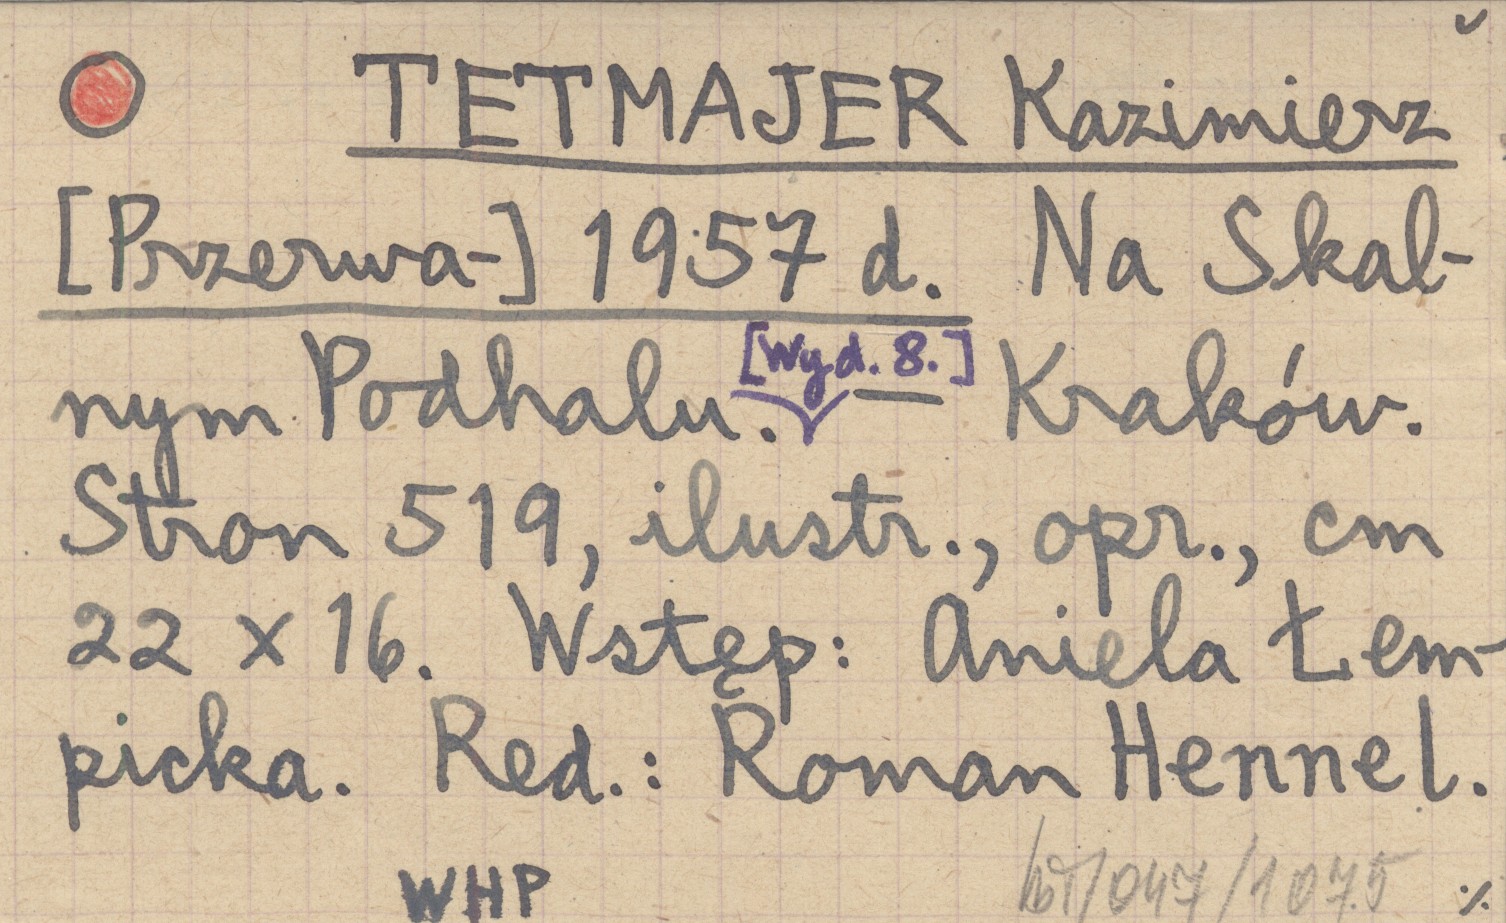 TETMAJER Kazimierz
[Przerwa-] 1957 d. Na Skal-
[Wyd. 8.]
nym Podhalu. — Kraków.
Stron 519, ilustr., opr., cm
22 x 16. Wstęp: Aniela Łem-
picka. Red.: Roman Hennel.
WHP /047/1075 ./.